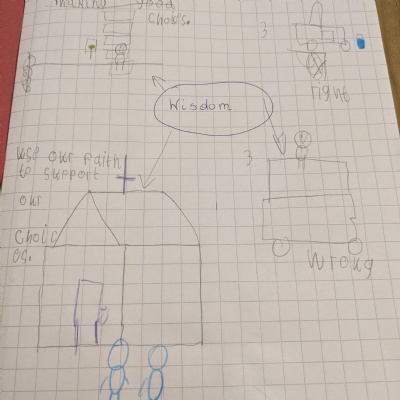 making good
choices.
3
right
Wisdom
use our faith
to support
our
choic
es.
3
Wrong